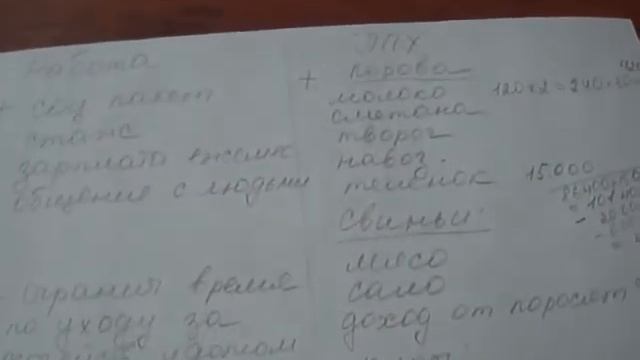 Работа
+ соц пакет
стаж
зарплата ежемес
общение с людьми
- огранич время
по уходу за
ЛПХ
+ корова
молоко 120x2=240
сметана
творог
навоз.
телёнок 15.000
свиньи:
мясо
сало
доход от поросят